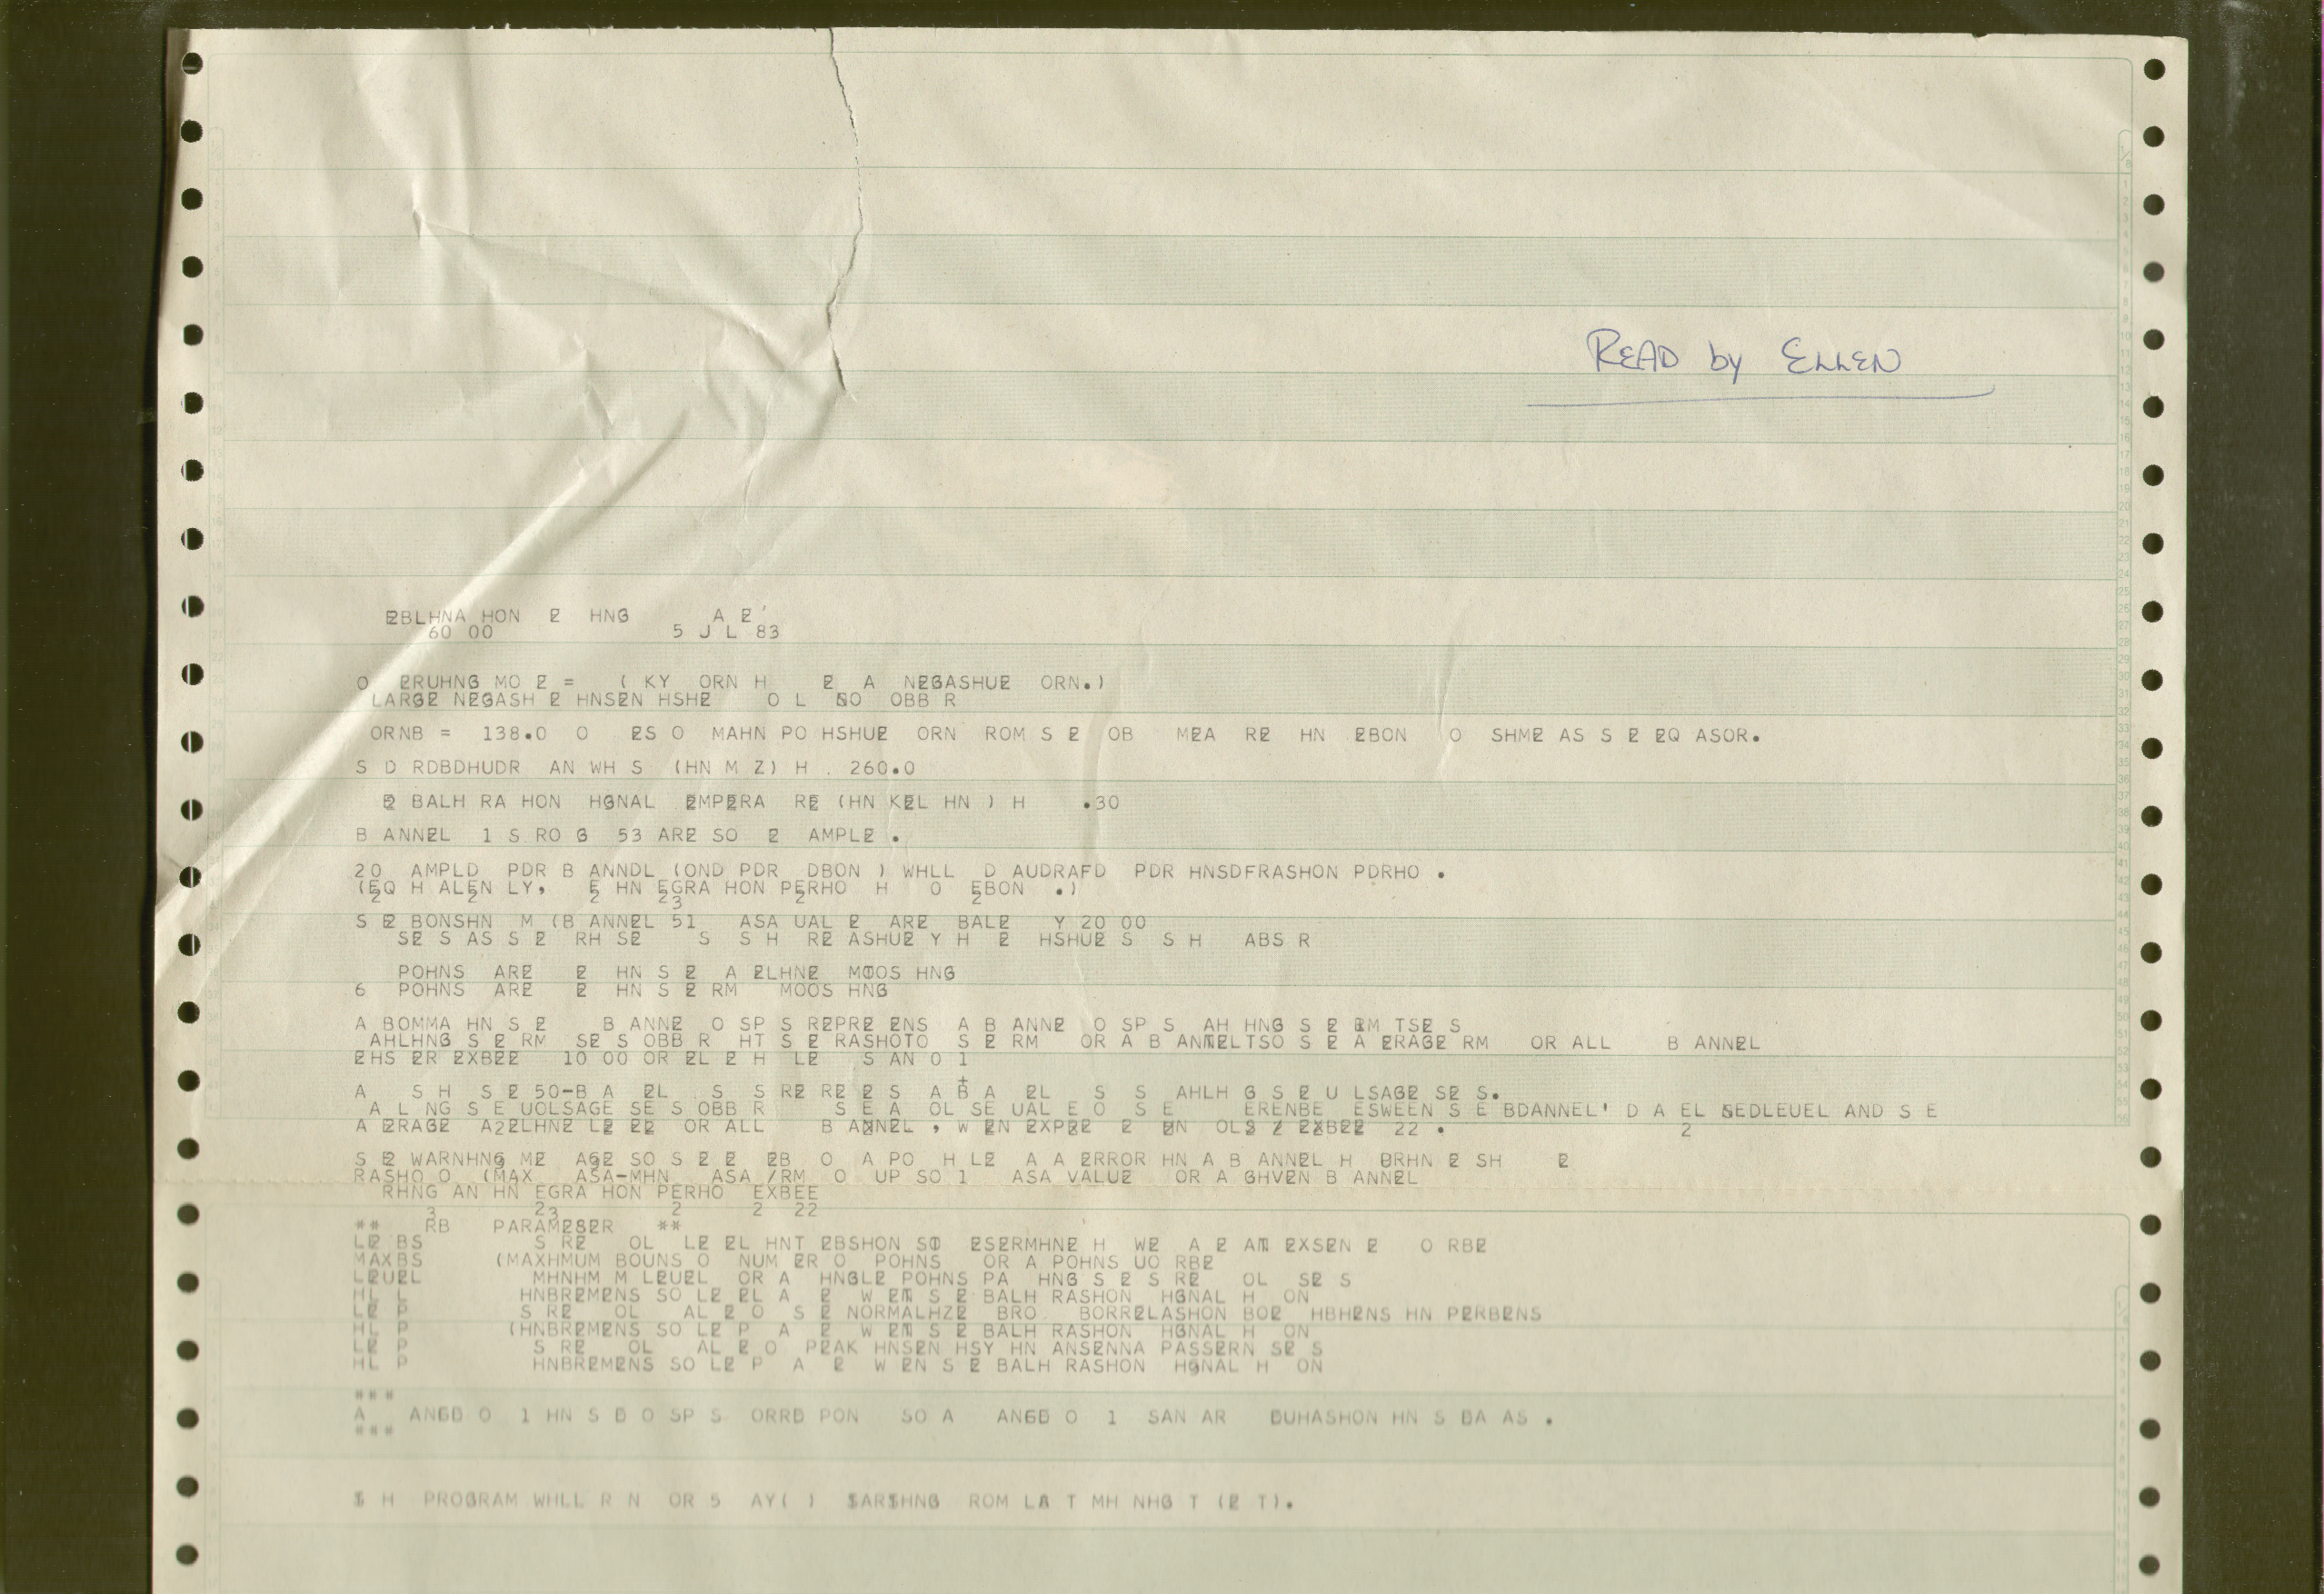 READ by ELLEN
EBLHNA HON E HNG A E'
60 00 5 J L 83
O ERUHNG MO E = ( KY ORN H E A NEGASHUE ORN.)
LARGE NEGASH E HNSEN HSHE O L SO OBB R
ORNB = 138.0 O ES O MAHN PO HSHUE ORN ROM S E OB MEA RE HN EBON O SHME AS S E EQ ASOR.
S D RDBDHUDR AN WH S (HN M Z) H . 260.0
E BALH RA HON HGNAL EMPERA RE (HN KEL HN ) H .30
B ANNEL 1 S RO G 53 ARE SO E AMPLE .
20 AMPLD PDR B ANNDL (OND PDR DBON ) WHLL D AUDRAFD PDR HNSDFRASHON PDRHO .
(EQ H ALEN LY, E HN EGRA HON PERHO H O EBON .)
2 2 2 23 2 2
S E BONSHN M (B ANNEL 51 ASA UAL E ARE BALE Y 20 00
SE S AS S E RH SE S S H RE ASHUE Y H E HSHUE S S H ABS R
POHNS ARE E HN S E A ELHNE MOOS HNG
6 POHNS ARE E HN S E RM MOOS HNG
A BOMMA HN S E B ANNE O SP S REPRE ENS A B ANNE O SP S AH HNG S E RM TSE S
AHLHNG S E RM SE S OBB R HT S E RASHOTO S E RM OR A B ANNELTSO S E A ERAGE RM OR ALL B ANNEL
EHS ER EXBEE 10 00 OR EL E H LE S AN 0 1
A S H S E 50-B A EL S S RE RE E S A B A EL S S AHLH G S E U LSAGE SE S.
A L NG S E UOLSAGE SE S OBB R S E A OL SE UAL E O S E ERENBE ESWEEN S E BDANNEL' D A EL SEDLEUEL AND S E
A ERAGE A2ELHNE LE EE OR ALL B ANNEL , W EN EXPEE E EN OLS / EXBEE 22 .
S E WARNHNG ME AGE SO S E E EB O A PO H LE A A ERROR HN A B ANNEL H BRHN E SH E
RASHO O (MAX ASA-MHN ASA /RM O UP SO 1 ASA VALUE OR A GHVEN B ANNEL
RHNG AN HN EGRA HON PERHO EXBEE
3 23 2 2 22
** RB PARAMESER **
LE BS S RE OL LE EL HNT EBSHON SO ESERMHNE H WE A E AN EXSEN E O RBE
MAXBS (MAXHMUM BOUNS O NUM ER O POHNS OR A POHNS UO RBE
LEUEL MHNHM M LEUEL OR A HNGLE POHNS PA HNG S E S RE OL SE S
HL L HNBREMENS SO LE EL A E W EN S E BALH RASHON HGNAL H ON
LE P S RE OL AL E O S E NORMALHZE BRO BORRELASHON BOE HBHENS HN PERBENS
HL P (HNBREMENS SO LE P A E W EN S E BALH RASHON HGNAL H ON
LE P S RE OL AL E O PEAK HNSEN HSY HN ANSENNA PASSERN SE S
HL P HNBREMENS SO LE P A E W EN S E BALH RASHON HGNAL H ON
***
A ANGD O 1 HN S D O SP S ORRD PON SO A ANGD O 1 SAN AR DUHASHON HN S DA AS .
***
S H PROGRAM WHLL R N OR 5 AY( ) SARSHNG ROM LA T MH NHG T (E T).